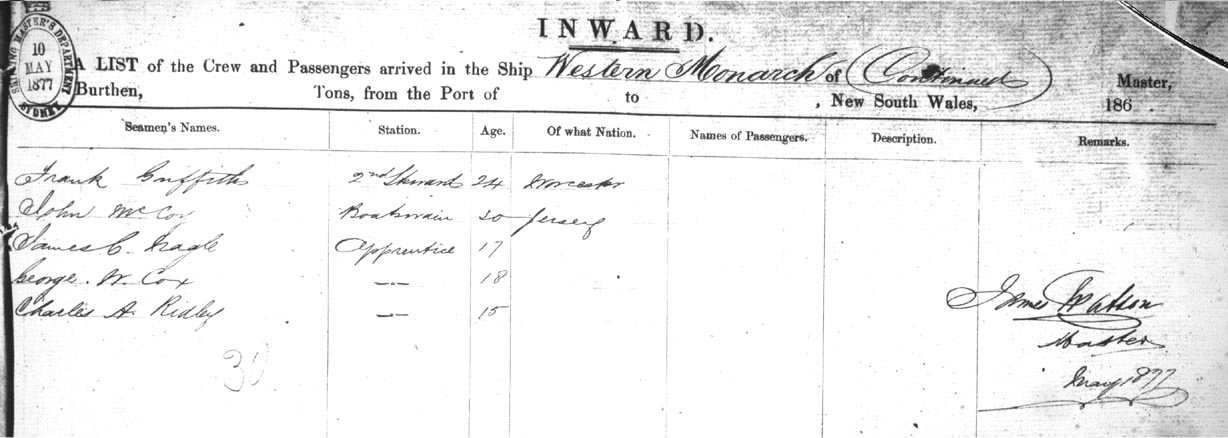 INWARD.
SHIPPING MASTER'S DEPARTMENT
10
MAY
1877
SYDNEY
A LIST of the Crew and Passengers arrived in the Ship Western Monarch of (Continued) Master,
Burthen, Tons, from the Port of to , New South Wales, 186
Seamen's Names. Station. Age. Of what Nation. Names of Passengers. Description. Remarks.
Frank Griffiths 2nd Steward 24 Worcester
John McCoy Boatswain 30 Jersey
James C. Nagle Apprentice 17
George. W. Cox —„— 18
Charles A. Ridley —„— 15
James Watson
Master
May 1877